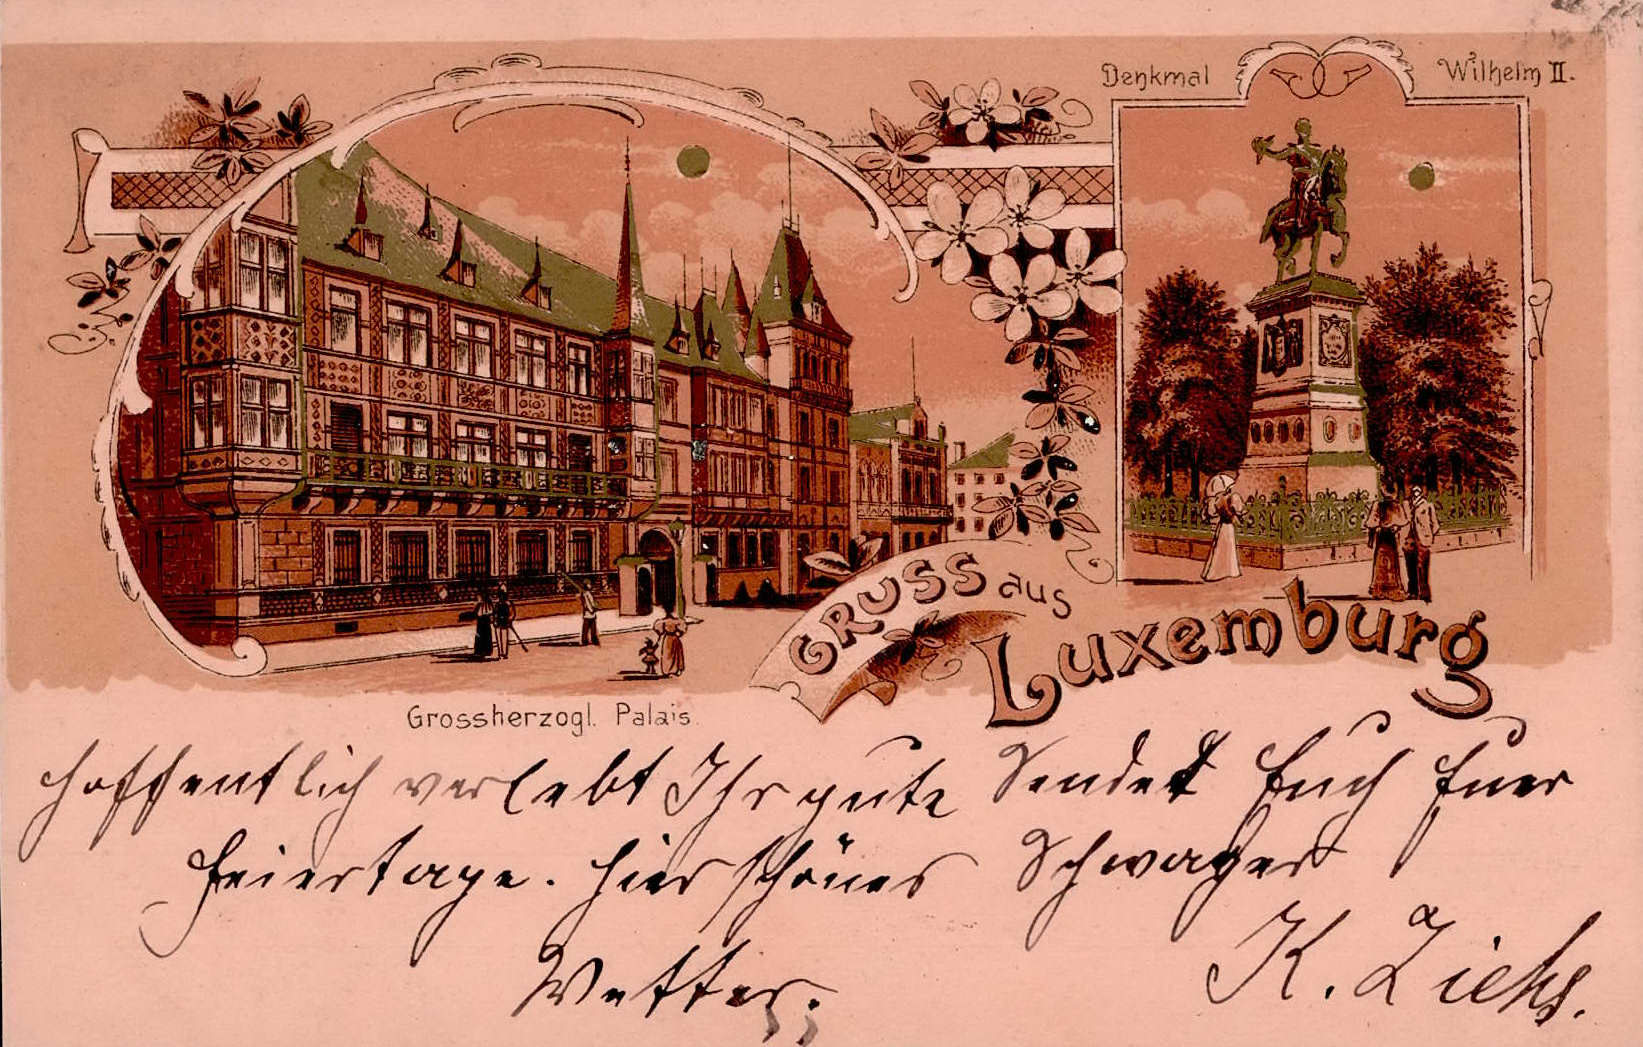 Denkmal Wilhelm II.
GRUSS aus
Luxemburg
Grossherzogl. Palais.
Hoffentlich verlebt Ihr gute
Feiertage. Hier schönes
Wetter.
Sendet Euch Euer
Schwager
K.